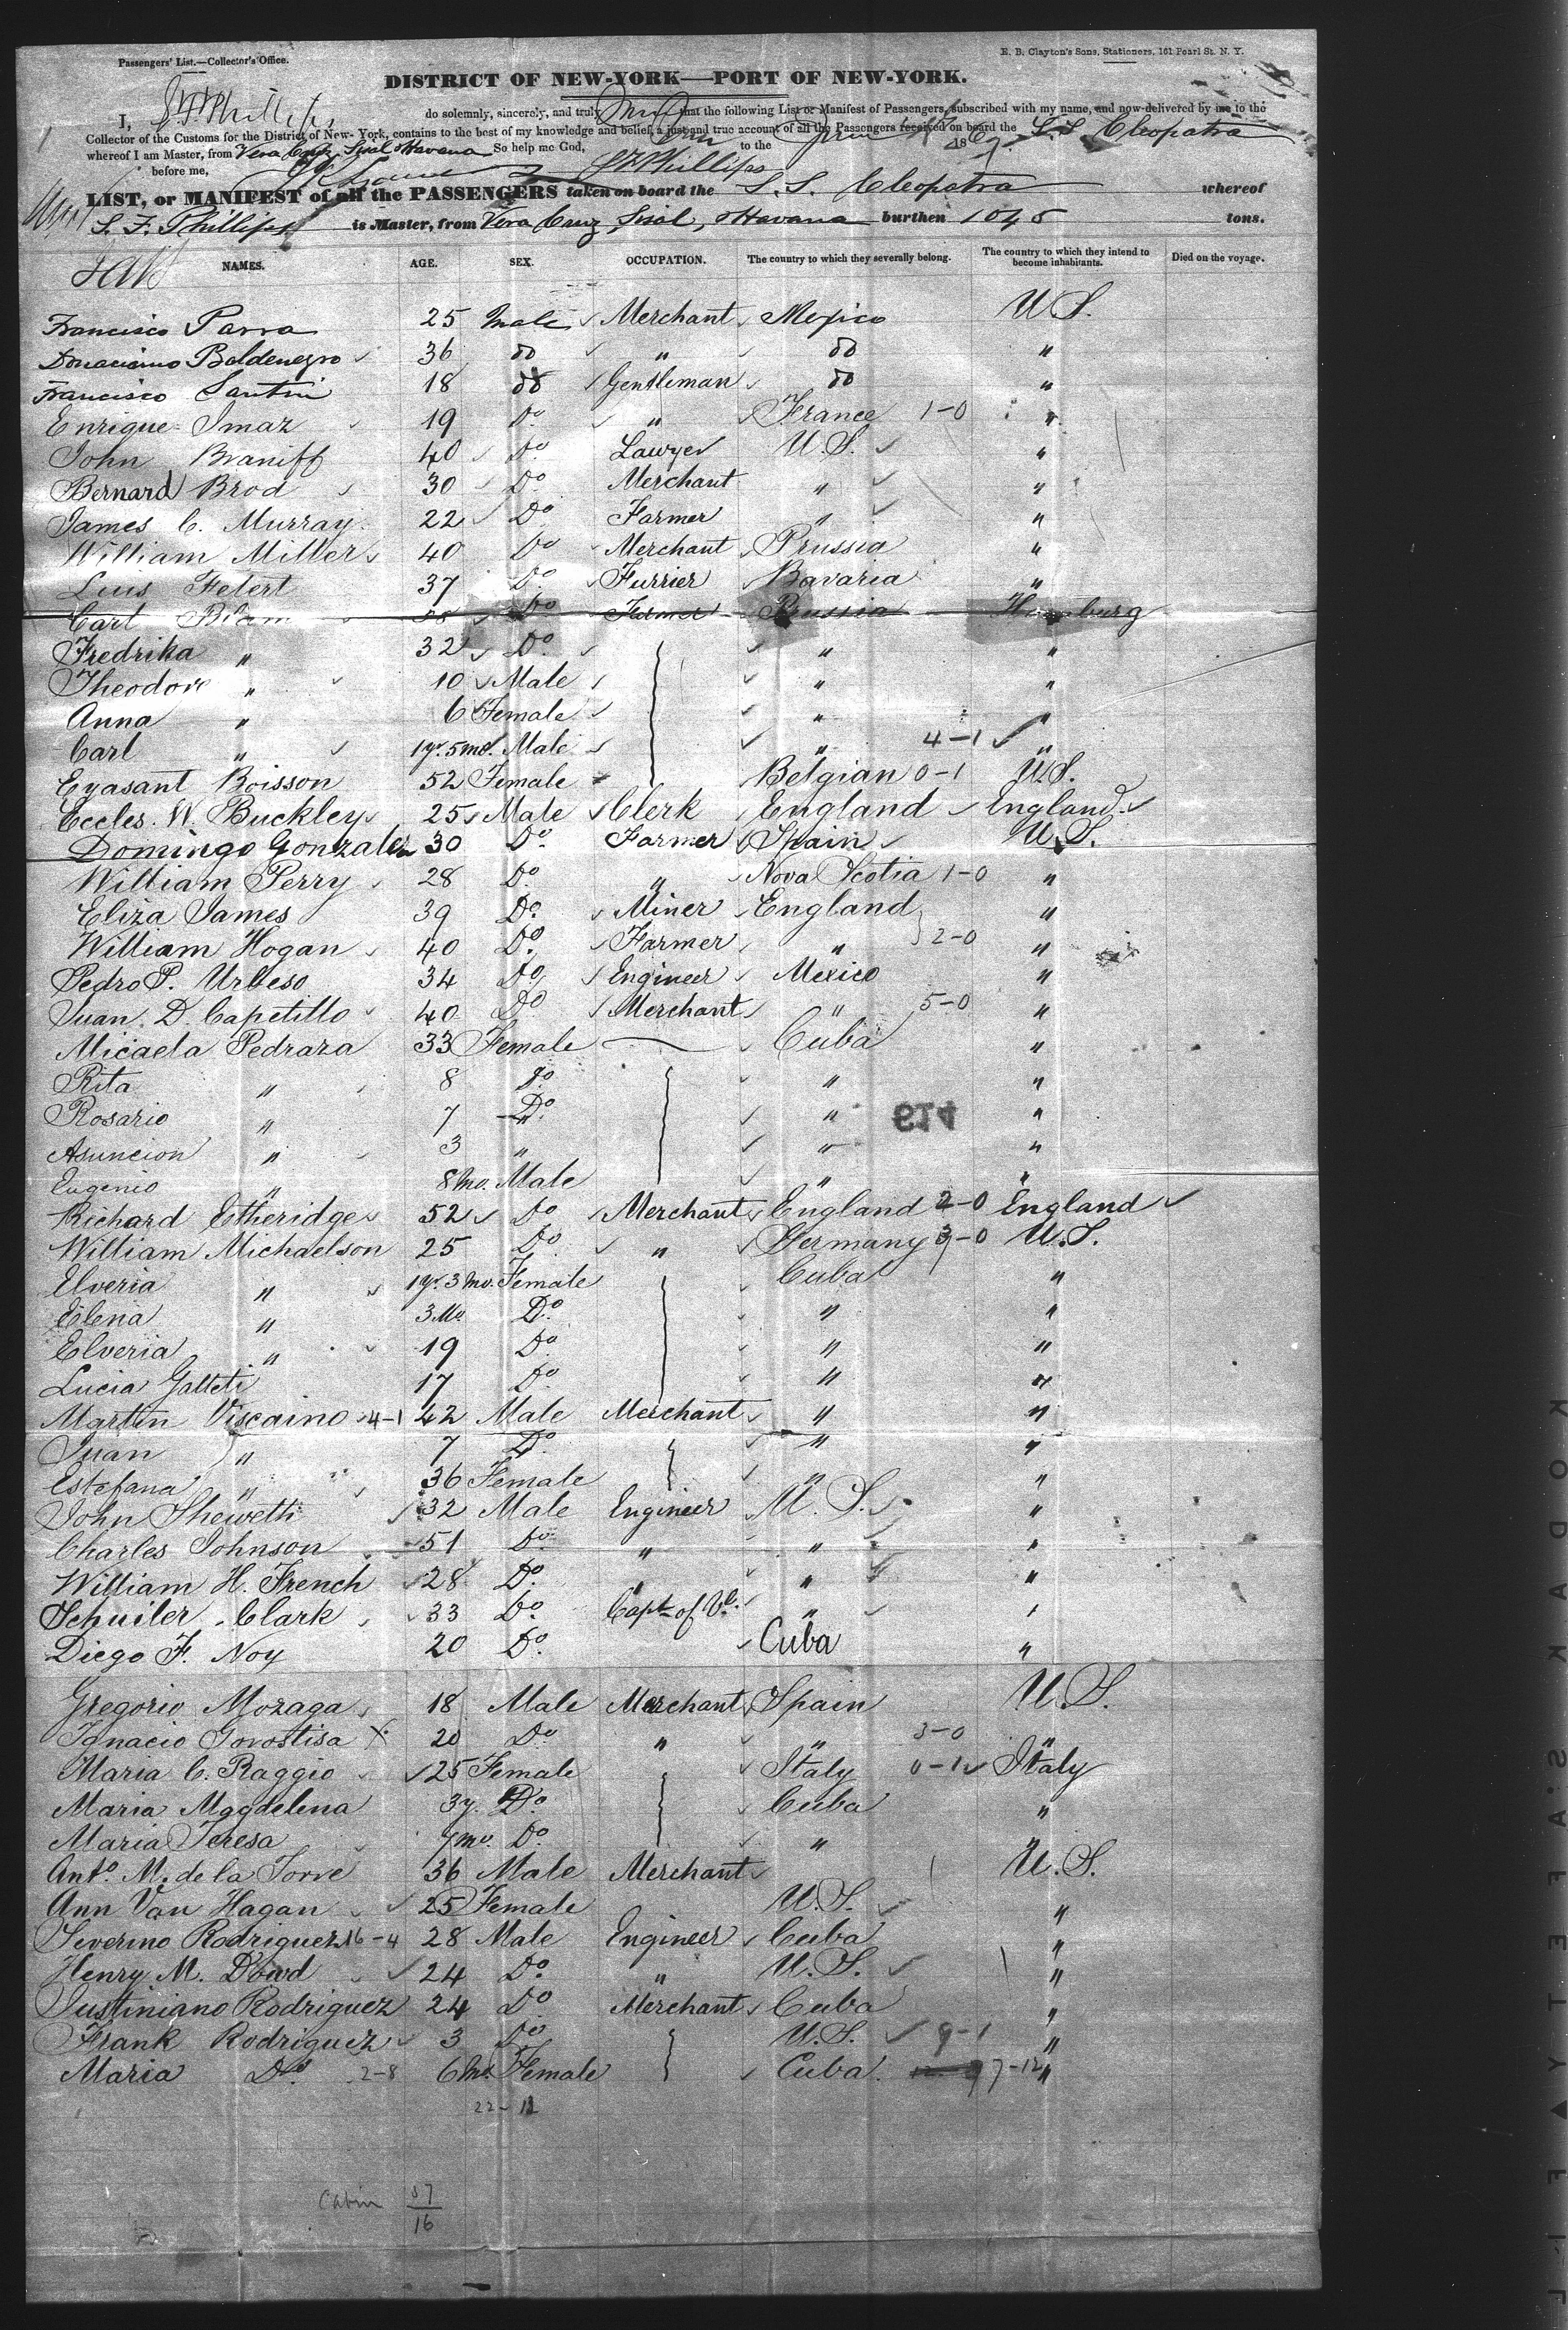 Passengers' List.—Collector's Office.
E. B. Clayton's Sons, Stationers, 161 Pearl St. N. Y.
DISTRICT OF NEW-YORK—PORT OF NEW-YORK.
I, S F Phillips do solemnly, sincerely, and truly that the following List or Manifest of Passengers, subscribed with my name, and now delivered by me to the
Collector of the Customs for the District of New-York, contains to the best of my knowledge and belief, a just and true account of all the Passengers received on board the S.S. Cleopatra
whereof I am Master, from Vera Cruz Sisal & Havana So help me God, to the 186
before me, S F Phillips
LIST, or MANIFEST of all the PASSENGERS taken on board the S. S. Cleopatra whereof
S. F. Phillips is Master, from Vera Cruz, Sisal, & Havana burthen 1045 tons.
NAMES. AGE. SEX. OCCUPATION. The country to which they severally belong. The country to which they intend to become inhabitants. Died on the voyage.
Francisco Parra 25 Male Merchant Mexico U S.
Donaciano Baldenegro 36 do " do "
Francisco Santini 18 do Gentleman do "
Enrique Imaz 19 Do " France 1-0 "
John Braniff 40 Do Lawyer U.S. "
Bernard Brod 30 Do Merchant " "
James C. Murray 22 Do Farmer " "
William Miller 40 Do Merchant Prussia "
Luis Fetert 37 Do Furrier Bavaria "
Carl Do Farmer Prussia Hamburg
Fredrika " 32 Do " "
Theodore " 10 Male " "
Anna " 6 Female " "
Carl " 1 yr. 5 mo. Male " 4-1 "
Eyasant Boisson 52 Female Belgian 0-1 U.S.
Eccles. W. Buckley 25 Male Clerk England England
Domingo Gonzalez 30 Do Farmer Spain U.S.
William Perry 28 Do " Nova Scotia 1-0 "
Eliza James 39 Do. Miner England "
William Hogan 40 Do. Farmer " 2-0 "
Pedro P. Urbeso 34 Do Engineer Mexico "
Juan D. Capetillo 40 Do Merchant " 5-0 "
Micaela Pedraza 33 Female Cuba "
Rita " 8 Do " "
Rosario " 7 Do " "
Asuncion " 3 " " "
Eugenio " 8 mo. Male " "
Richard Etheridge 52 Do Merchant England 2-0 England
William Michaelson 25 Do " Germany 3-0 U.S.
Elveria " 1 yr. 3 mo. Female Cuba "
Elena " 3 Mo Do " "
Elveria " 19 Do " "
Lucia Galteti 17 Do " "
Martin Viscaino 4-1 42 Male Merchant " "
Juan " 7 Do " "
Estefana " 36 Female " "
John Shewetti 32 Male Engineer U. S. "
Charles Johnson 51 Do " " "
William H. French 28 Do. " " "
Schuiler Clark 33 Do Capt of Vl. " "
Diego F. Noy 20 Do. Cuba "
Gregorio Mozaga 18 Male Merchant Spain U.S.
Ignacio Gorostisa X 20 Do " " 3-0 "
Maria C. Raggio 25 Female Italy 0-1 Italy
Maria Magdelena 3 y. Do Cuba "
Maria Teresa 7 mo. Do " "
Anto. M. de la Torre 36 Male Merchant U. S.
Ann Van Hagan 25 Female U.S. "
Severino Rodriguez 16-4 28 Male Engineer Cuba "
Henry M. Dowd 24 Do " U.S. "
Justiniano Rodriguez 24 Do Merchant Cuba "
Frank Rodriguez 3 Do U.S. 9-1 "
Maria Do. 2-8 6 mo. Female Cuba 97-12 "
22-11
Cabin 57
16